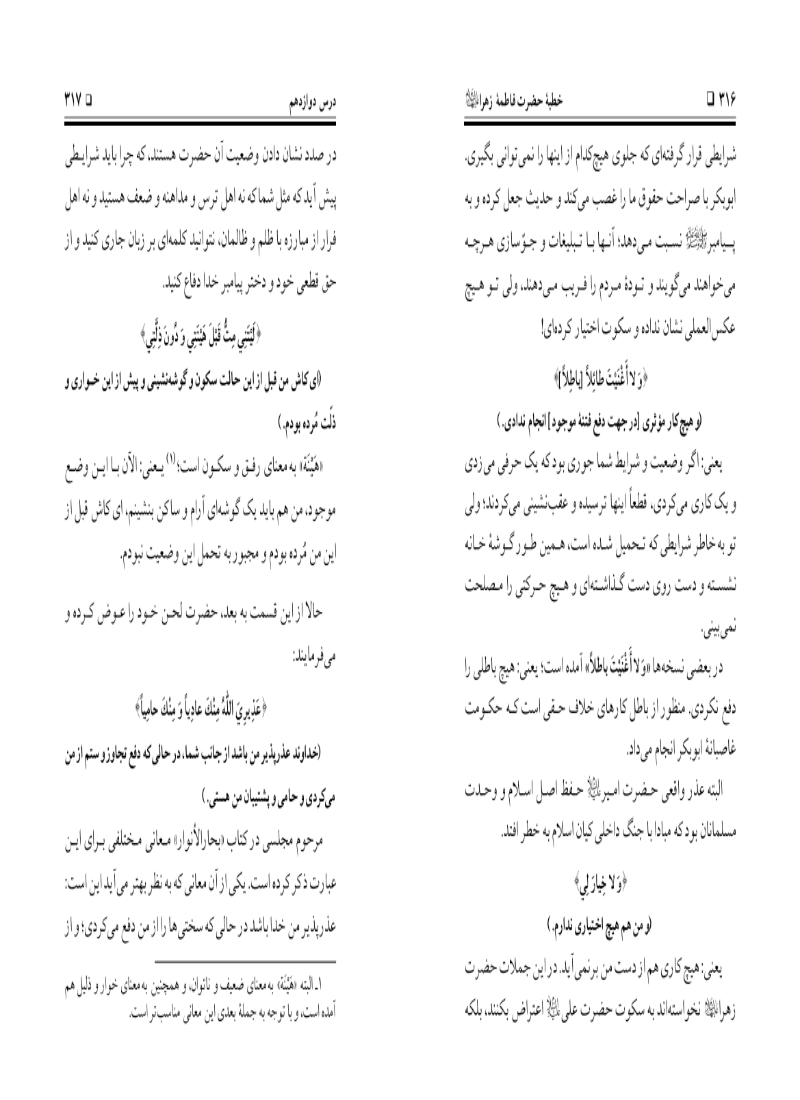 ۳۱۶ ❑ خطبهٔ حضرت فاطمهٔ زهرا علیها‌السلام
شرایطی قرار گرفته‌ای که جلوی هیچ‌کدام از اینها را نمی‌توانی بگیری.
ابوبکر با صراحت حقوق ما را غصب می‌کند و حدیث جعل کرده و به
پـیامبر ﷺ نسبت مـی‌دهد؛ آنـها بـا تـبلیغات و جـوّسازی هـرچـه
می‌خواهند می‌گویند و تـودهٔ مـردم را فـریب مـی‌دهند، ولی تـو هـیچ
عکس‌العملی نشان نداده و سکوت اختیار کرده‌ای!
﴿وَ لا أَغْنَيْتَ طائِلاً [باطِلاً]﴾
(و هیچ کار مؤثری [در جهت دفع فتنهٔ موجود] انجام ندادی.)
یعنی: اگر وضعیت و شرایط شما جوری بود که یک حرفی می‌زدی
و یک کاری می‌کردی، قطعاً اینها ترسیده و عقب‌نشینی می‌کردند؛ ولی
تو به خاطر شرایطی که تـحمیل شـده است، هـمین طـور گـوشهٔ خـانه
نشسـته و دست روی دست گـذاشـته‌ای و هـیچ حـرکتی را مـصلحت
نمی‌بینی.
در بعضی نسخه‌ها «وَ لا أَغْنَيْتَ باطلاً» آمده است؛ یعنی: هیچ باطلی را
دفع نکردی. منظور از باطل کارهای خلاف حـقی است کـه حکـومت
غاصبانهٔ ابوبکر انجام می‌داد.
البته عذر واقعی حـضرت امـیر علیه‌السلام حـفظ اصـل اسـلام و وحـدت
مسلمانان بود که مبادا با جنگ داخلی کیان اسلام به خطر افتد.
﴿وَ لا خِيارَ لِي﴾
(و من هم هیچ اختیاری ندارم.)
یعنی: هیچ کاری هم از دست من برنمی‌آید. در این جملات حضرت
زهرا علیها‌السلام نخواسته‌اند به سکوت حضرت علی علیه‌السلام اعتراض بکنند، بلکه
درس دوازدهم ❑ ۳۱۷
در صدد نشان دادن وضعیت آن حضرت هستند، که چرا باید شرایـطی
پیش آید که مثل شما که نه اهل ترس و مداهنه و ضعف هستید و نه اهل
فرار از مبارزه با ظلم و ظالمان، نتوانید کلمه‌ای بر زبان جاری کنید و از
حق قطعی خود و دختر پیامبر خدا دفاع کنید.
﴿لَيْتَنِي مِتُّ قَبْلَ هَيْنَتِي وَ دُونَ ذِلَّتِي﴾
(ای کاش من قبل از این حالت سکون و گوشه‌نشینی و پیش از این خـواری و
ذلّت مُرده بودم.)
«هَيْنَة» به معنای رفـق و سکـون است؛(۱) یـعنی: الآن بـا ایـن وضـع
موجود، من هم باید یک گوشه‌ای آرام و ساکن بنشینم، ای کاش قبل از
این من مُرده بودم و مجبور به تحمل این وضعیت نبودم.
حالا از این قسمت به بعد، حضرت لحـن خـود را عـوض کـرده و
می‌فرمایند:
﴿عَذِيرِيَ اللّٰهُ مِنْكَ عادِياً وَ مِنْكَ حامِياً﴾
(خداوند عذرپذیر من باشد از جانب شما، در حالی که دفع تجاوز و ستم از من
می‌کردی و حامی و پشتیبان من هستی.)
مرحوم مجلسی در کتاب «بحارالأنوار» مـعانی مـختلفی بـرای ایـن
عبارت ذکر کرده است. یکی از آن معانی که به نظر بهتر می‌آید این است:
عذرپذیر من خدا باشد در حالی که سختی‌ها را از من دفع می‌کردی؛ و از
۱ـ البته «هَيْنَة» به معنای ضعیف و ناتوان، و همچنین به معنای خوار و ذلیل هم
آمده است، و با توجه به جملهٔ بعدی این معانی مناسب‌تر است.